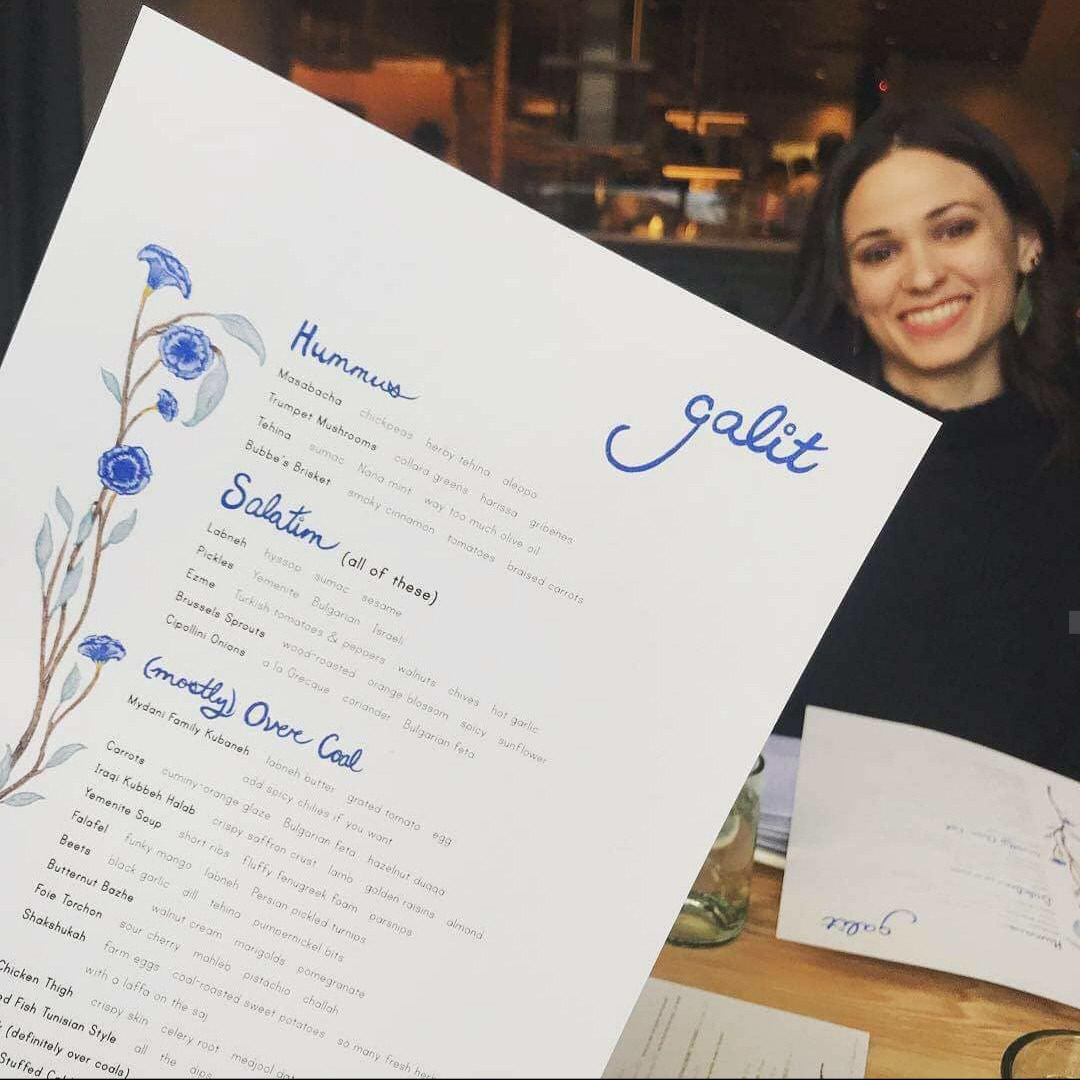 galit
Hummus
Masabacha chickpeas herby tehina aleppo
Trumpet Mushrooms collard greens harissa gribenes
Tehina sumac Nana mint way too much olive oil
Bubbe's Brisket smoky cinnamon tomatoes braised carrots
Salatim (all of these)
Labneh hyssop sumac sesame
Pickles Yemenite Bulgarian Israeli
Ezme Turkish tomatoes & peppers walnuts chives hot garlic
Brussels Sprouts wood-roasted orange blossom spicy sunflower
Cipollini Onions a la Grecque coriander Bulgarian feta
(mostly) Over Coal
Mydani Family Kubaneh labneh butter grated tomato egg
add spicy chilies if you want
Carrots cuminy-orange glaze Bulgarian feta hazelnut duqqa
Iraqi Kubbeh Halab crispy saffron crust lamb golden raisins almond
Yemenite Soup short ribs fluffy fenugreek foam parsnips
Falafel funky mango labneh Persian pickled turnips
Beets black garlic dill tehina pumpernickel bits
Butternut Bazhe walnut cream marigolds pomegranate
Foie Torchon sour cherry mahleb pistachio challah
Shakshukah farm eggs coal-roasted sweet potatoes so many fresh herb
with a laffa on the saj
Chicken Thigh crispy skin celery root mejool dat
ed Fish Tunisian Style all the dips
(definitely over coals)
Stuffed
galit
Hummus